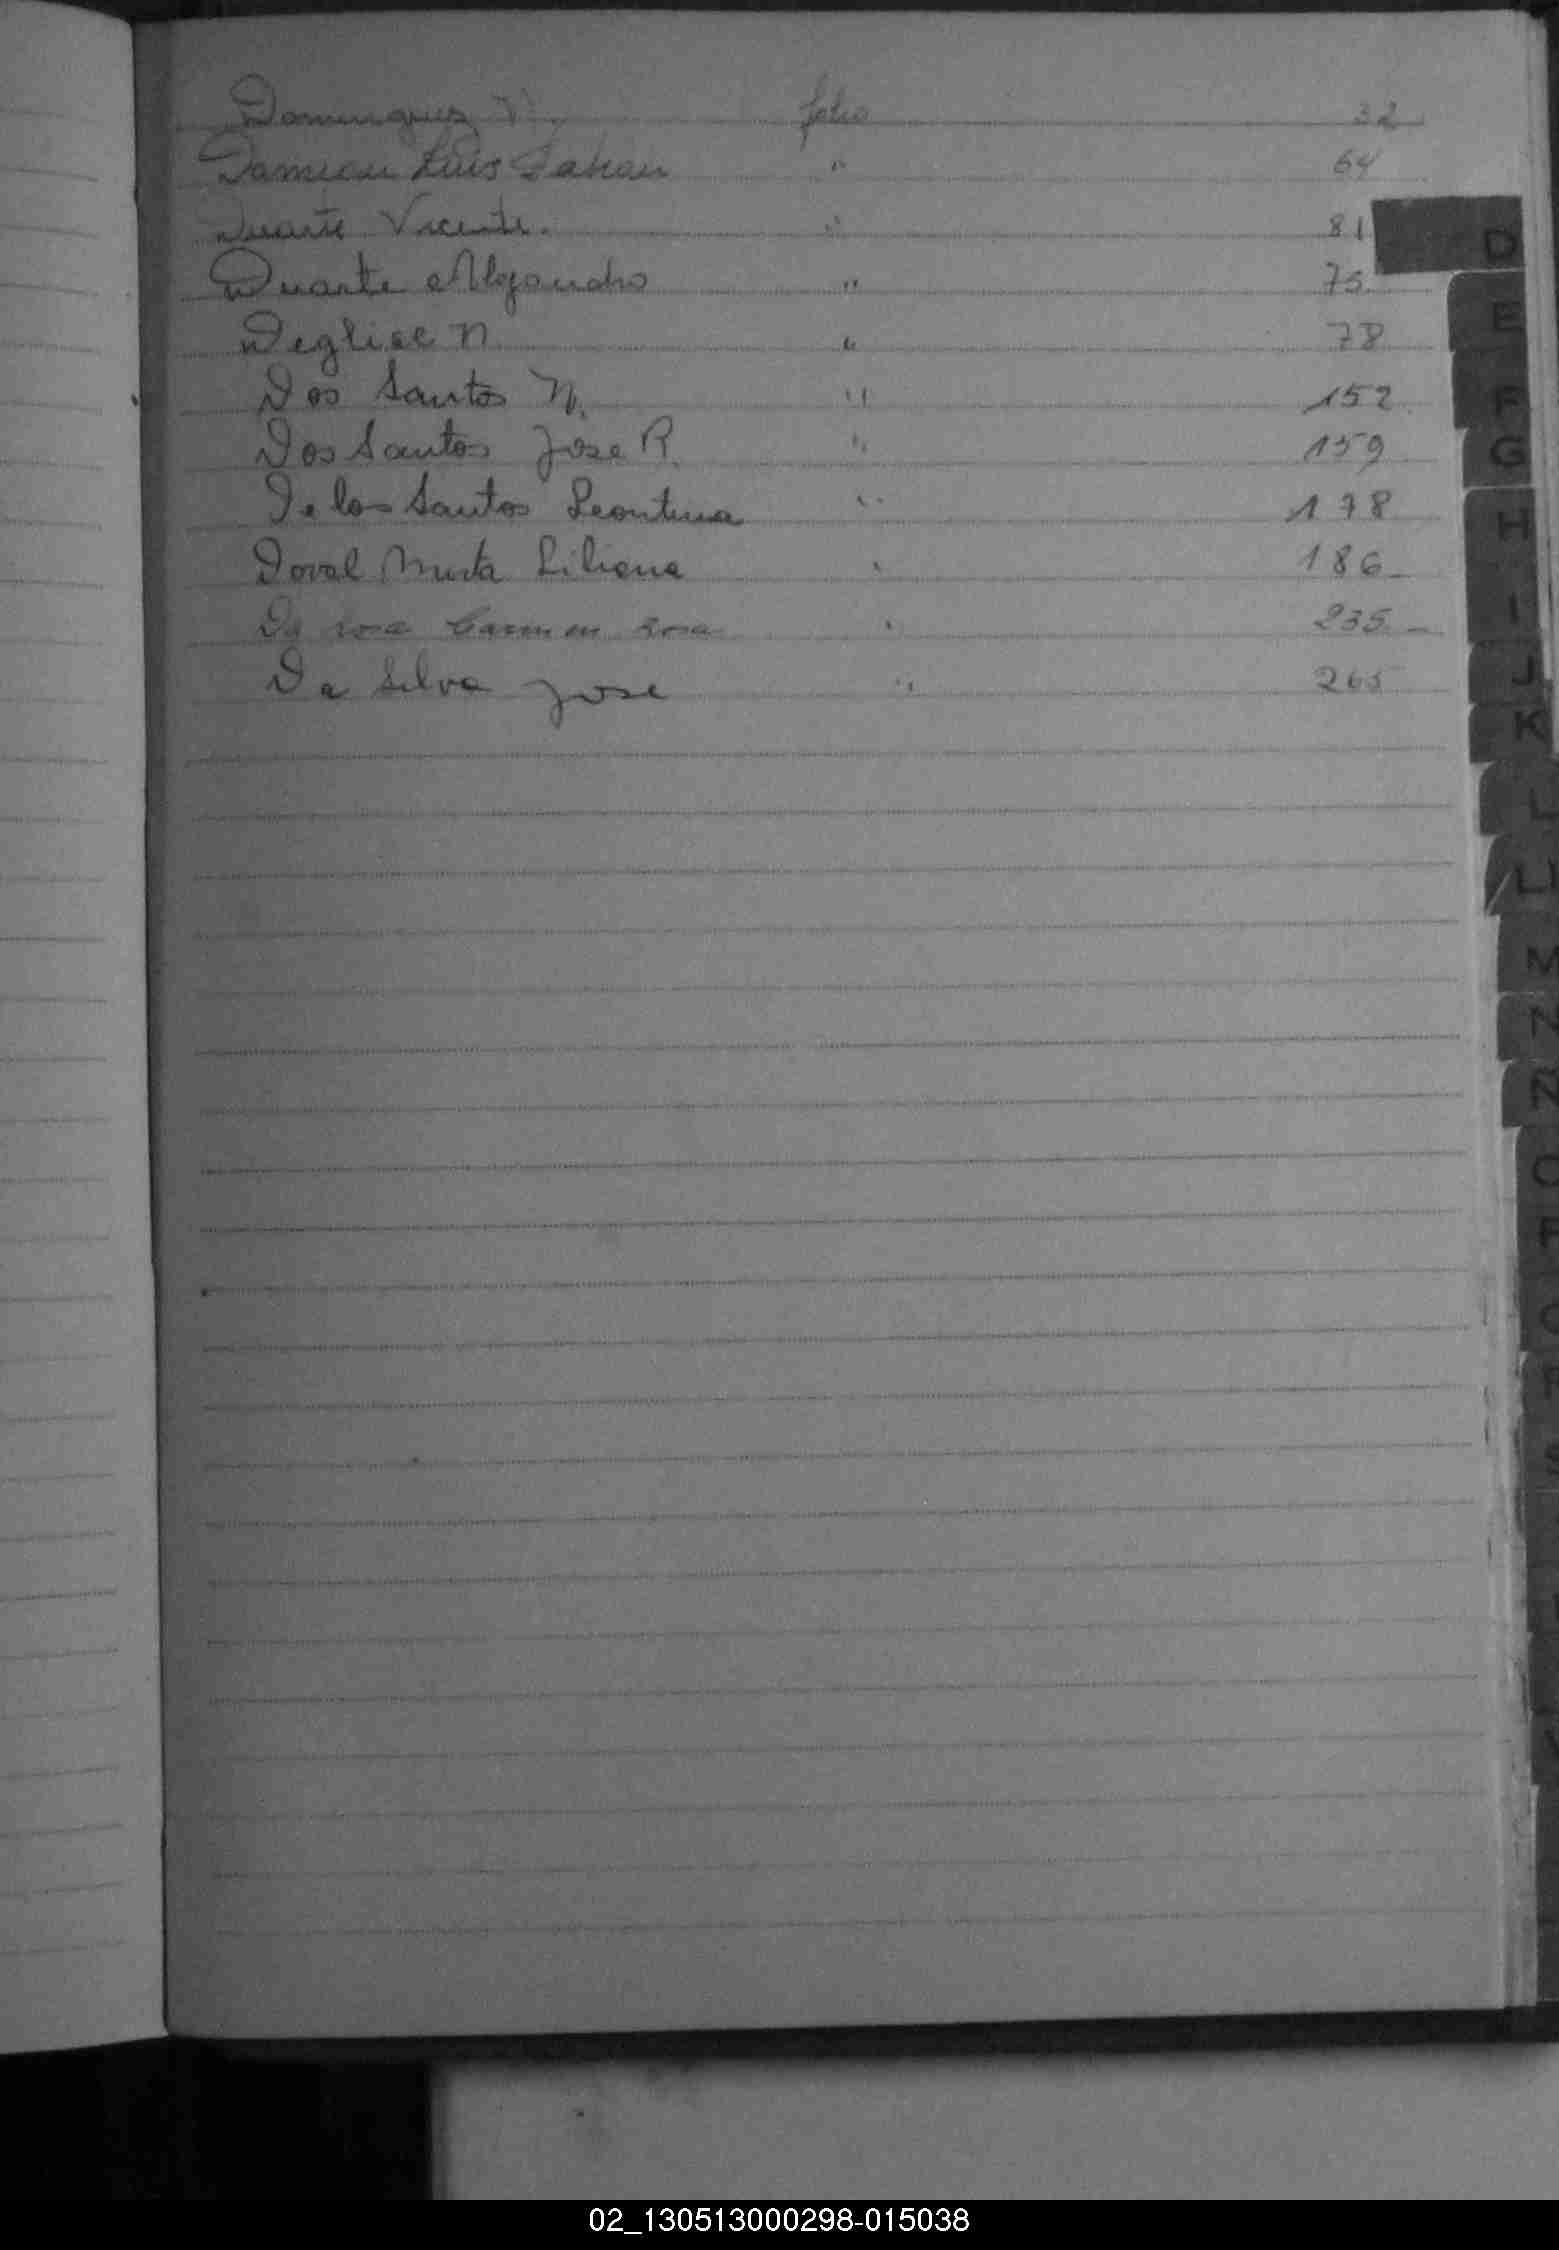 Dominguez N. folio 32
Damian Luis " 64
Duarte Vicente. " 81
Duarte Alejandro " 75
Deglise N " 78
Dos Santos N. " 152
Dos Santos Jose R. " 159
De los Santos Leontina " 178
Doval Mirta Liliana " 186
Da rosa Carmen rosa " 235
Da Silva Jose " 265
D
E
F
G
H
I
J
K
L
LL
M
N
Ñ
O
P
Q
R
S
V
02_130513000298-015038